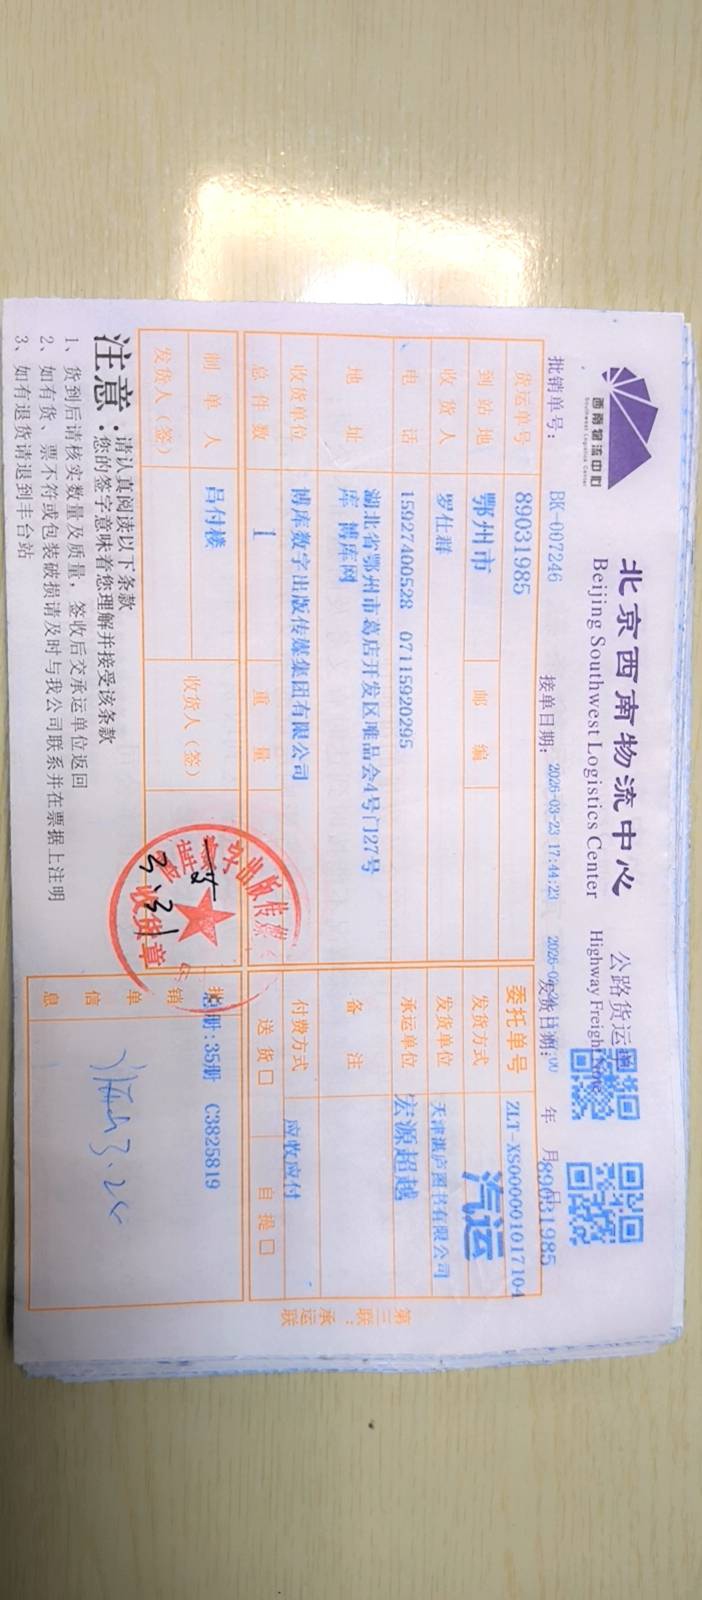 西南物流中心
Southwest Logistics Center
北京西南物流中心 公路货运单
Beijing Southwest Logistics Center Highway Freight
批销单号： BK-007246 接单日期： 2026-03-23 17:44:23 发货日期： 年 月 89031985
货运单号 89031985 委托单号 ZLT-XS000001017104
到站地 鄂州市 邮编 发货方式 汽运
收货人 罗仕群 发货单位 天津湛庐图书有限公司
电话 15927400528 07115920295 承运单位 宏源超越
地址 湖北省鄂州市葛店开发区唯品会4号门27号
库 博库网 备注
收货单位 博库数字出版传媒集团有限公司 付费方式 应收应付
总件数 1 重量 送货 □ 自提 □
制单人 吕付楼 收货人（签） 批销单信息 总册:35册 C3825819
发货人（签）
数字出版传媒
收货章
3.31
3.24
第三联：承运联
注意： 请认真阅读以下条款
您的签字意味着您理解并接受该条款
1、货到后请核实数量及质量，签收后交承运单位返回
2、如有货，票不符或包装破损请及时与我公司联系并在票据上注明
3、如有退货请退到丰台站